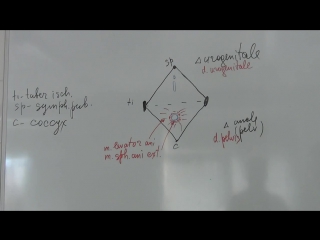 sp
Δ urogenitale
d. urogenitale
ti-tuber isch.
sp-symph. pub.
c-coccyx
ti
Δ anale
(pelv)
d. pelvis
m. levator ani
m. sph. ani ext.
c